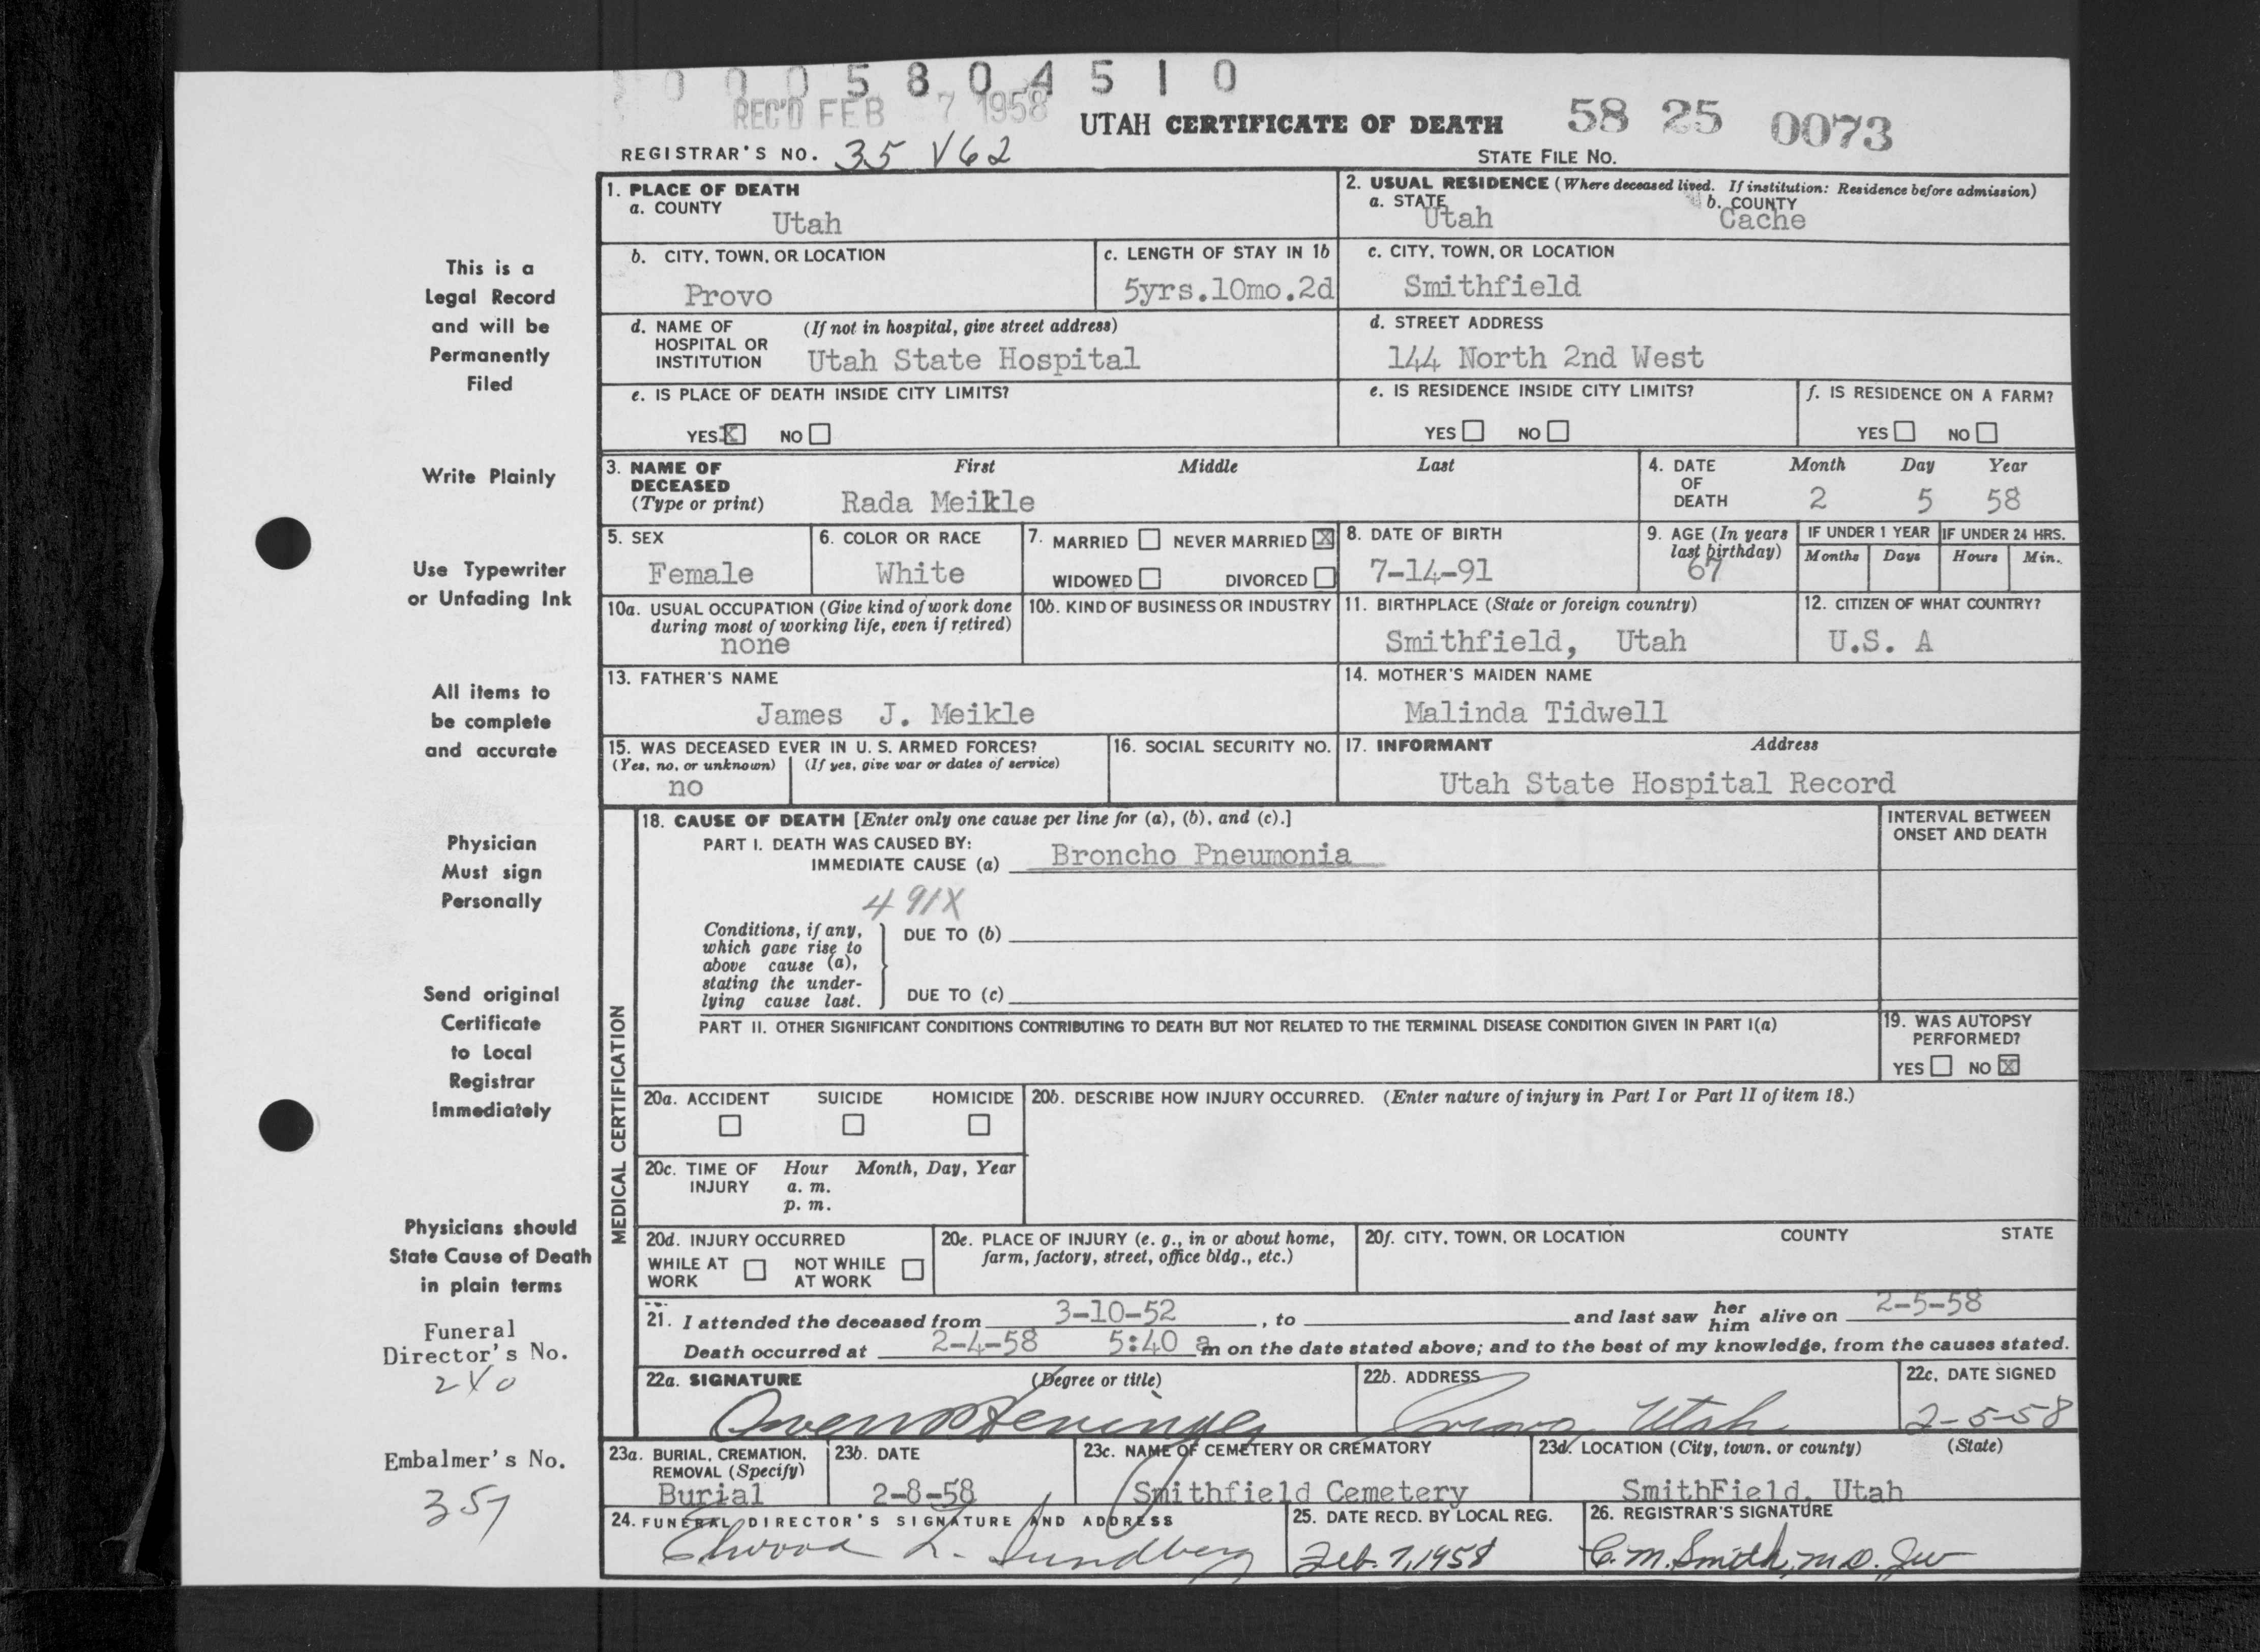 0 0 0 5 8 0 4 5 1 0
REC'D FEB 7 1958
UTAH CERTIFICATE OF DEATH 58 25 0073
REGISTRAR'S NO. 35 V62 STATE FILE NO.
1. PLACE OF DEATH
a. COUNTY
Utah
2. USUAL RESIDENCE (Where deceased lived. If institution: Residence before admission)
a. STATE b. COUNTY
Utah Cache
b. CITY, TOWN, OR LOCATION
Provo
c. LENGTH OF STAY IN 1b
5yrs.10mo.2d
c. CITY, TOWN, OR LOCATION
Smithfield
d. NAME OF (If not in hospital, give street address)
HOSPITAL OR
INSTITUTION Utah State Hospital
d. STREET ADDRESS
144 North 2nd West
e. IS PLACE OF DEATH INSIDE CITY LIMITS?
YES X NO
e. IS RESIDENCE INSIDE CITY LIMITS?
YES NO
f. IS RESIDENCE ON A FARM?
YES NO
3. NAME OF First Middle Last
DECEASED
(Type or print) Rada Meikle
4. DATE Month Day Year
OF
DEATH 2 5 58
5. SEX
Female
6. COLOR OR RACE
White
7. MARRIED NEVER MARRIED X
WIDOWED DIVORCED
8. DATE OF BIRTH
7-14-91
9. AGE (In years
last birthday)
67
IF UNDER 1 YEAR
Months Days
IF UNDER 24 HRS.
Hours Min.
10a. USUAL OCCUPATION (Give kind of work done
during most of working life, even if retired)
none
10b. KIND OF BUSINESS OR INDUSTRY
11. BIRTHPLACE (State or foreign country)
Smithfield, Utah
12. CITIZEN OF WHAT COUNTRY?
U.S. A
13. FATHER'S NAME
James J. Meikle
14. MOTHER'S MAIDEN NAME
Malinda Tidwell
15. WAS DECEASED EVER IN U. S. ARMED FORCES?
(Yes, no, or unknown) (If yes, give war or dates of service)
no
16. SOCIAL SECURITY NO.
17. INFORMANT Address
Utah State Hospital Record
MEDICAL CERTIFICATION
18. CAUSE OF DEATH [Enter only one cause per line for (a), (b), and (c).]
PART I. DEATH WAS CAUSED BY:
IMMEDIATE CAUSE (a) Broncho Pneumonia
491X
Conditions, if any,
which gave rise to
above cause (a),
stating the under-
lying cause last.
DUE TO (b)
DUE TO (c)
INTERVAL BETWEEN
ONSET AND DEATH
PART II. OTHER SIGNIFICANT CONDITIONS CONTRIBUTING TO DEATH BUT NOT RELATED TO THE TERMINAL DISEASE CONDITION GIVEN IN PART I(a)
19. WAS AUTOPSY
PERFORMED?
YES NO X
20a. ACCIDENT SUICIDE HOMICIDE
20b. DESCRIBE HOW INJURY OCCURRED. (Enter nature of injury in Part I or Part II of item 18.)
20c. TIME OF Hour Month, Day, Year
INJURY a. m.
p. m.
20d. INJURY OCCURRED
WHILE AT NOT WHILE
WORK AT WORK
20e. PLACE OF INJURY (e. g., in or about home,
farm, factory, street, office bldg., etc.)
20f. CITY, TOWN, OR LOCATION COUNTY STATE
21. I attended the deceased from 3-10-52, to and last saw her him alive on 2-5-58
Death occurred at 2-4-58 5:40 a m on the date stated above; and to the best of my knowledge, from the causes stated.
22a. SIGNATURE (Degree or title)
Owen
22b. ADDRESS
Provo, Utah
22c. DATE SIGNED
2-5-58
23a. BURIAL, CREMATION,
REMOVAL (Specify)
Burial
23b. DATE
2-8-58
23c. NAME OF CEMETERY OR CREMATORY
Smithfield Cemetery
23d. LOCATION (City, town, or county) (State)
SmithField, Utah
24. FUNERAL DIRECTOR'S SIGNATURE AND ADDRESS
Elwood L. Sundberg
25. DATE RECD. BY LOCAL REG.
Feb. 7, 1958
26. REGISTRAR'S SIGNATURE
C. M. Smith, M.D. Jw
This is a
Legal Record
and will be
Permanently
Filed
Write Plainly
Use Typewriter
or Unfading Ink
All items to
be complete
and accurate
Physician
Must sign
Personally
Send original
Certificate
to Local
Registrar
Immediately
Physicians should
State Cause of Death
in plain terms
Funeral
Director's No.
240
Embalmer's No.
357